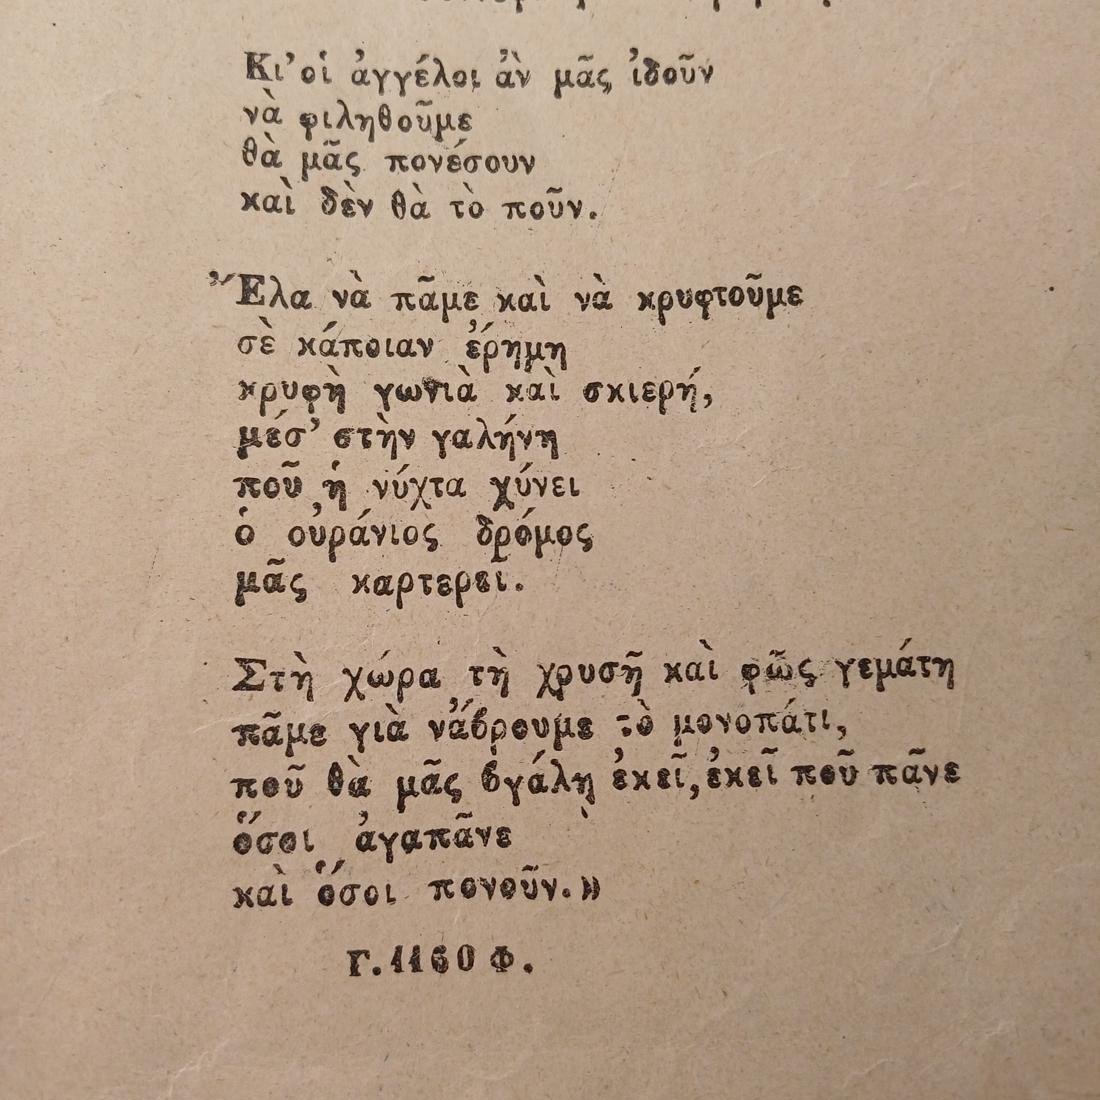 Κι’ οἱ ἀγγέλοι ἂν μᾶς ἰδοῦν
νὰ φιληθοῦμε
θὰ μᾶς πονέσουν
καὶ δὲν θὰ τὸ ποῦν.
Ἔλα νὰ πᾶμε καὶ νὰ κρυφτοῦμε
σὲ κάποιαν ἔρημη
κρυφὴ γωνιὰ καὶ σκιερή,
μέσ’ στὴν γαλήνη
ποῦ ἡ νύχτα χύνει
ὁ οὐράνιος δρόμος
μᾶς καρτερεῖ.
Στὴ χώρα τὴ χρυσῆ καὶ φῶς γεμάτη
πᾶμε γιὰ νἄβρουμε τὸ μονοπάτι,
ποῦ θὰ μᾶς βγάλῃ ἐκεῖ, ἐκεῖ ποῦ πᾶνε
ὅσοι ἀγαπᾶνε
καὶ ὅσοι πονοῦν.»
Γ. 1160 Φ.